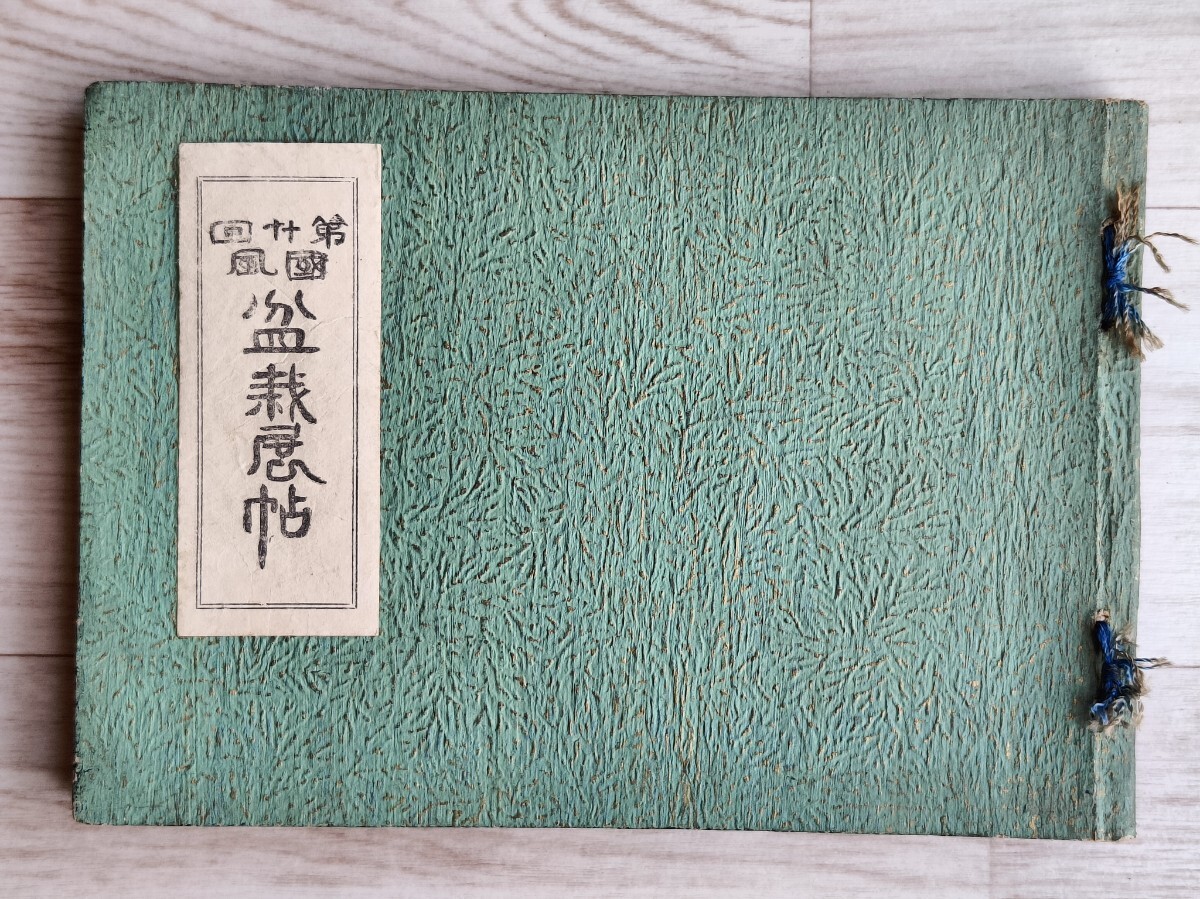 第廿回
國風
盆栽展帖